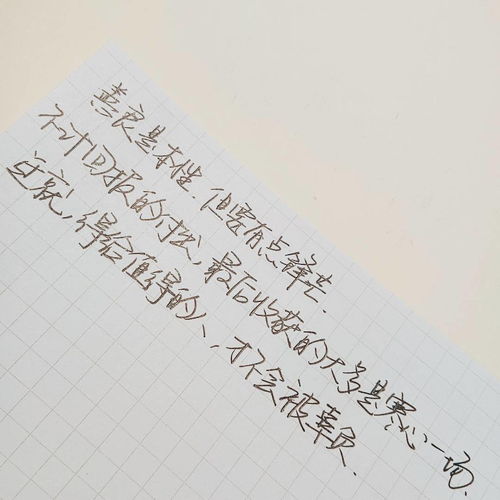 善良是本性.但要有点锋芒.
不计回报的付出,最后收获的大多是寒心一场.
迁就,得给值得的人,才不会被辜负.